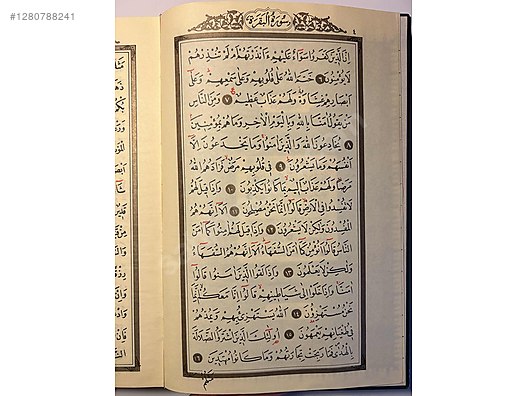 #1280788241
سورة البقرة
٤
ان الذين كفروا سواء عليهم ءانذرتهم ام لم تنذرهم
لا يؤمنون ٦ ختم الله على قلوبهم وعلى سمعهم وعلى
ابصارهم غشاوة ولهم عذاب عظيم ٧ ومن الناس
من يقول امنا بالله وباليوم الاخر وما هم بمؤمنين
٨ يخادعون الله والذين امنوا وما يخدعون الا
انفسهم وما يشعرون ٩ في قلوبهم مرض فزادهم الله
مرضا ولهم عذاب اليم بما كانوا يكذبون ١٠ واذا قيل لهم
لا تفسدوا في الارض قالوا انما نحن مصلحون ١١ الا انهم هم
المفسدون ولكن لا يشعرون ١٢ واذا قيل لهم امنوا كما امن
الناس قالوا انؤمن كما امن السفهاء الا انهم هم السفهاء
ولكن لا يعلمون ١٣ واذا لقوا الذين امنوا قالوا
امنا واذا خلوا الى شياطينهم قالوا انا معكم انما
نحن مستهزؤن ١٤ الله يستهزئ بهم ويمدهم
في طغيانهم يعمهون ١٥ اولئك الذين اشتروا الضلالة
بالهدى فما ربحت تجارتهم وما كانوا مهتدين ١٦